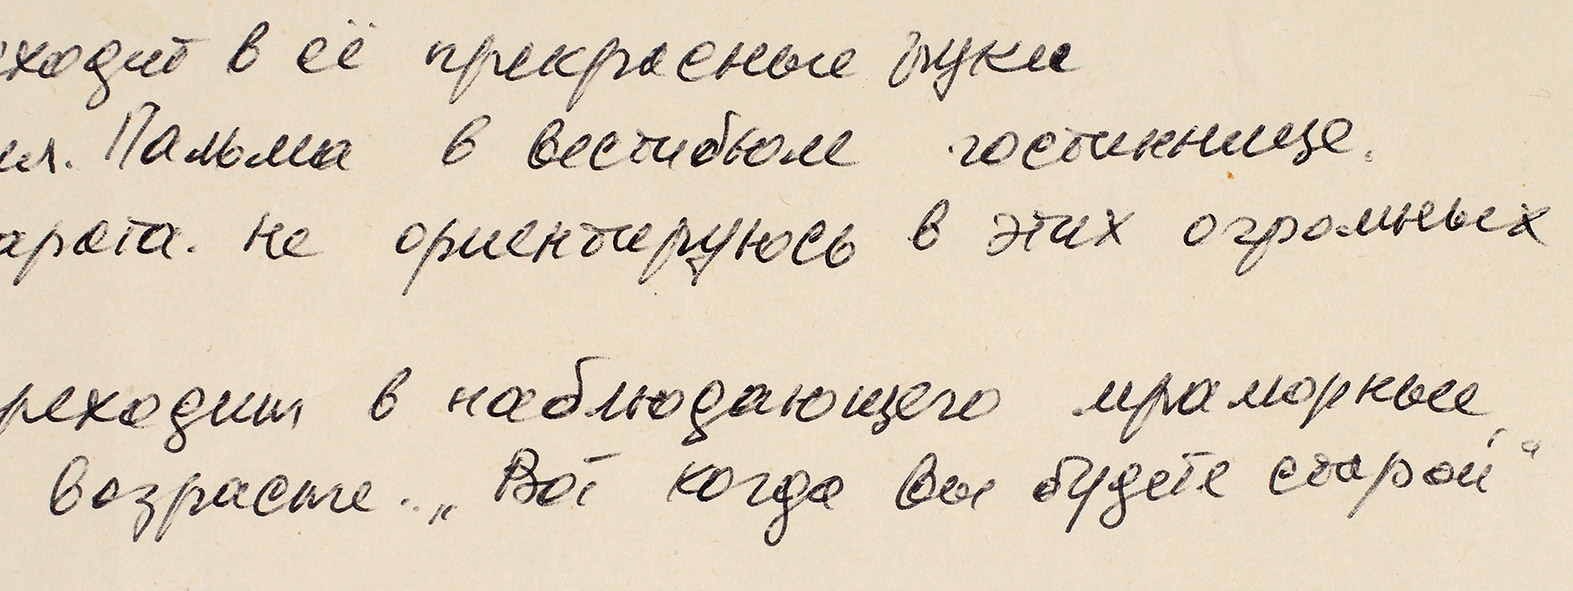 ходит в её прекрасные руки
ия. Пальма в вестибюле гостиннице.
арата. Не ориентируюсь в этих огромных
реходит в наблюдающего мраморные,
возрасте... „Вот когда вы будете старой“